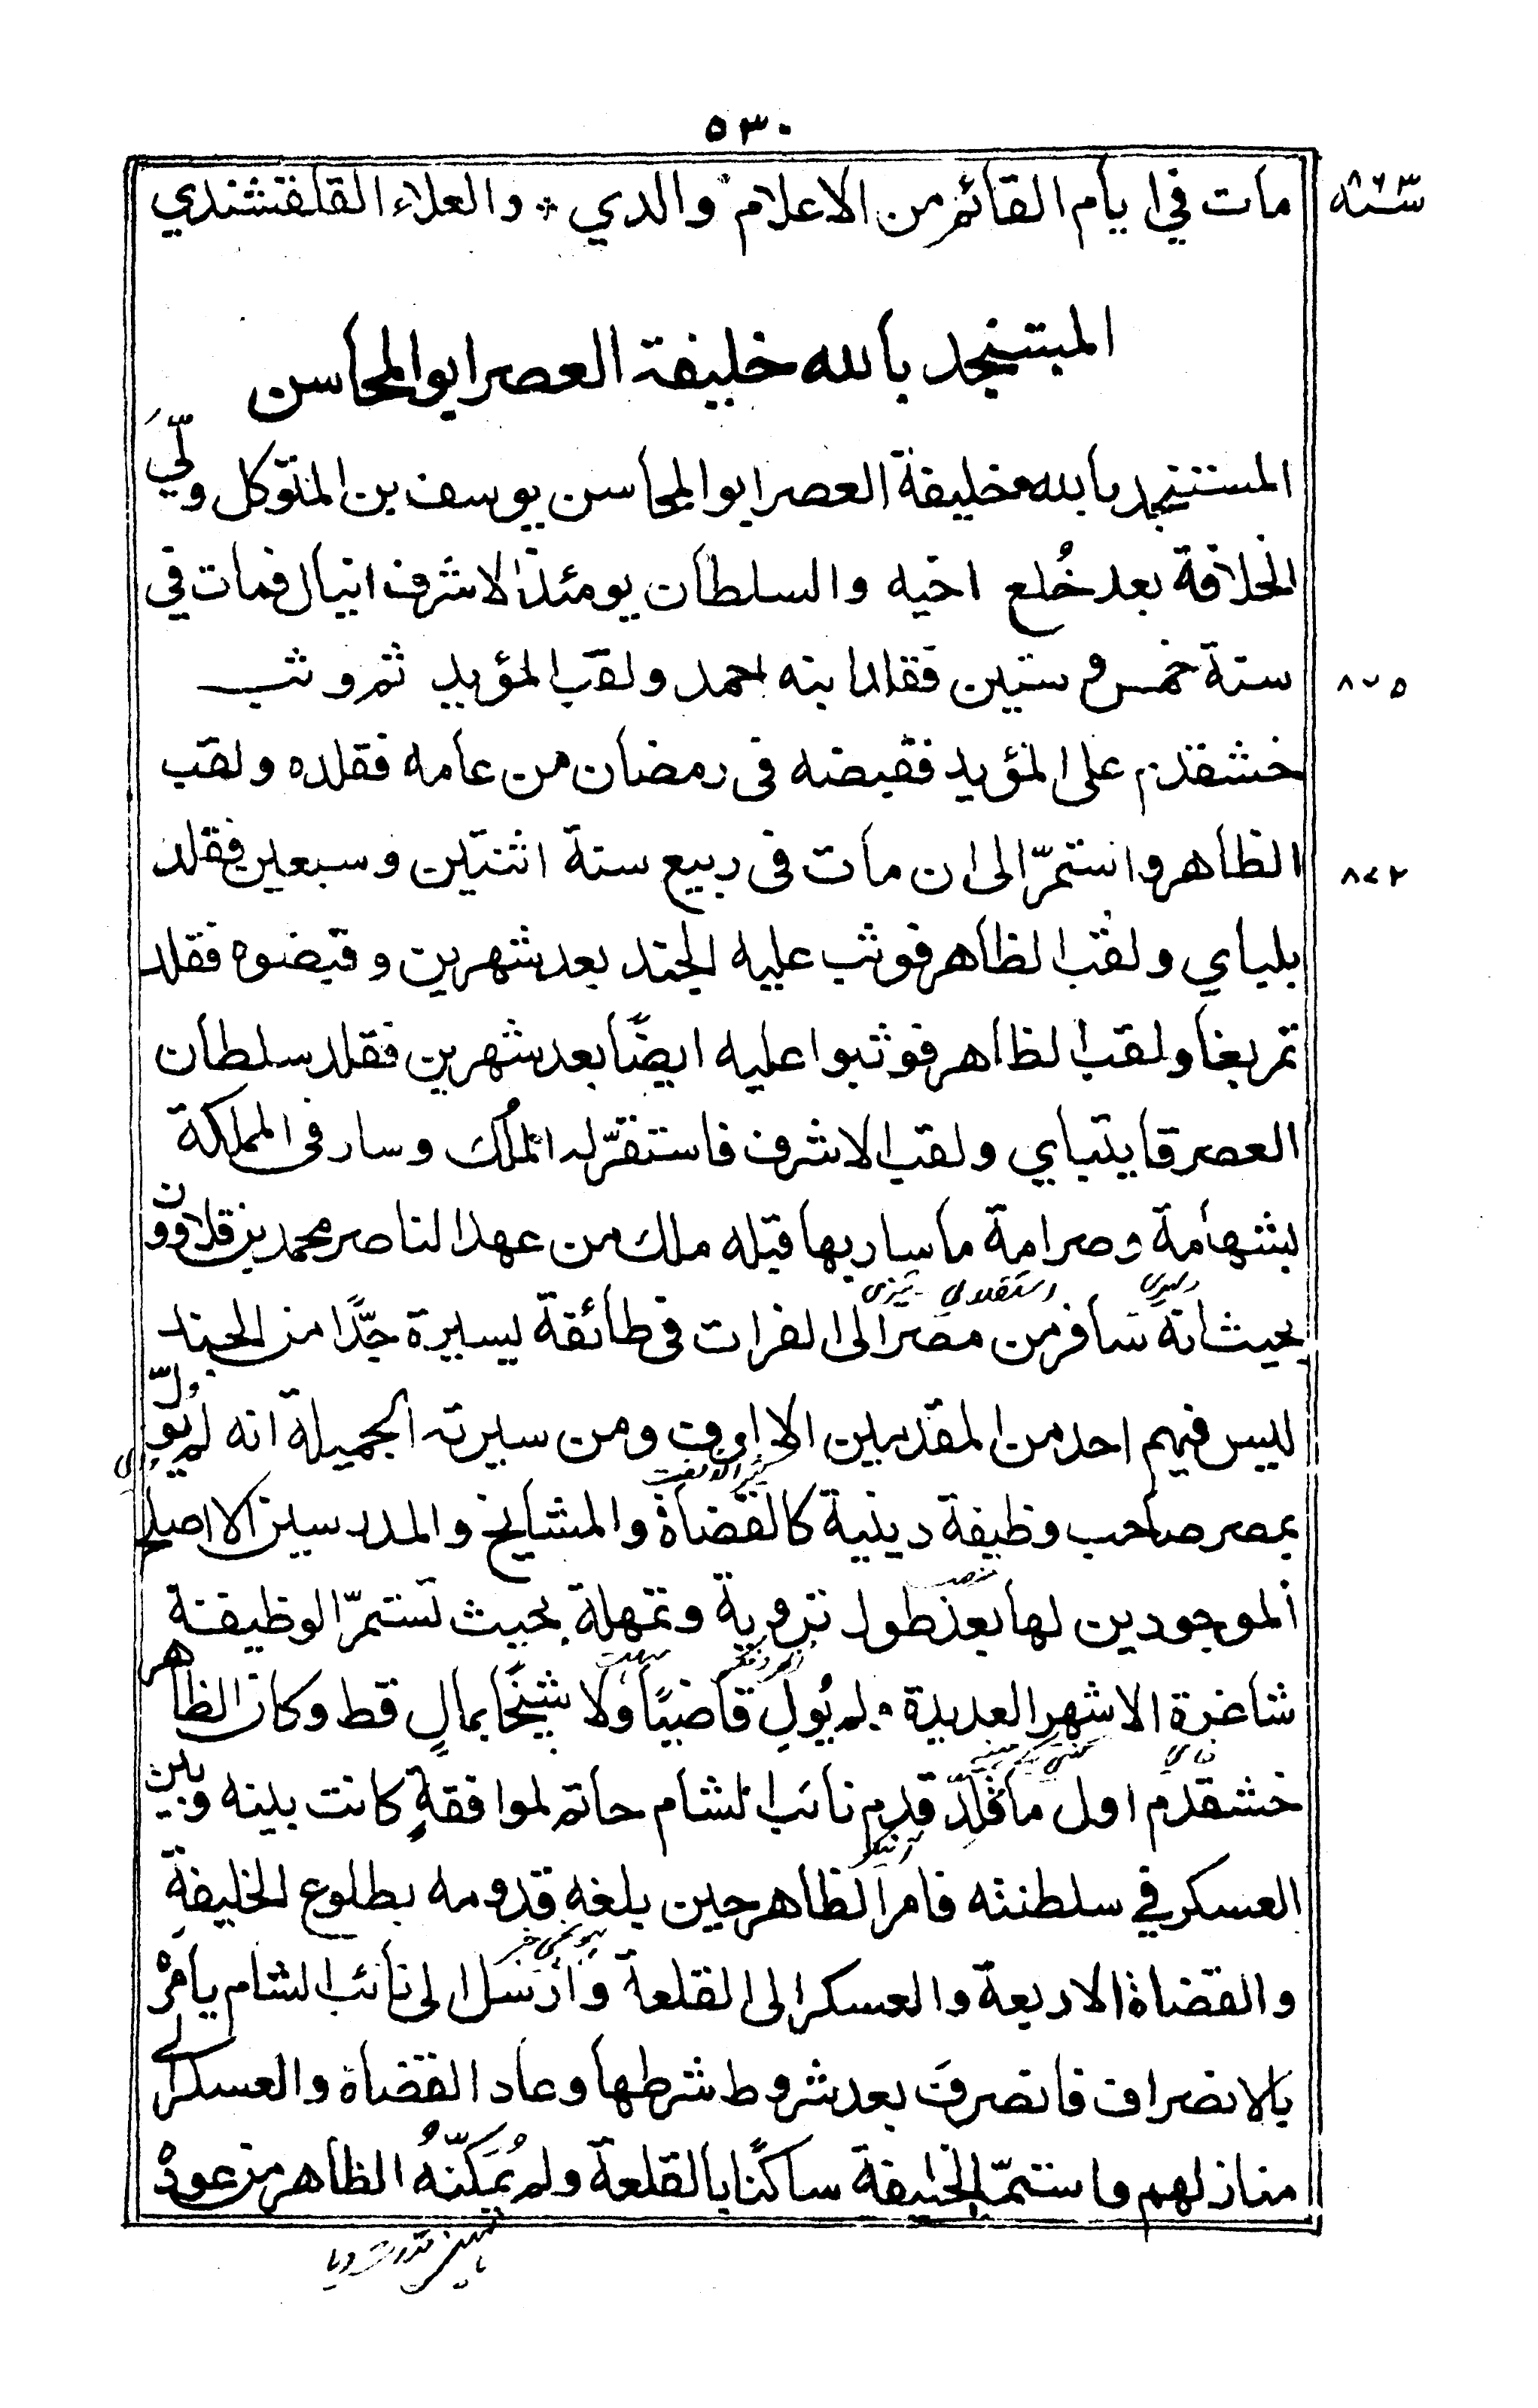 ٥٣٠
سنه ٨٦٣
مات في ايام القائم من الاعلام والدي * والعلاء القلقشندي
المستنجد بالله خليفة العصر ابو المحاسن
المستنجد بالله خليفة العصر ابو المحاسن يوسف بن المتوكل ولّي
الخلافة بعد خُلع اخيه والسلطان يومئذ الاشرف اينال فمات في
سنة خمس و ستين فقلد ابنه احمد ولقب المؤيد ثم وثب
٨٦٥
خشقدم على المؤيد فقبضه فى رمضان من عامه فقلده ولقب
الظاهر واستمرّ الى ان مات فى ربيع سنة اثنتين وسبعين فقلد
٨٧٢
بلباي ولقب الظاهر فوثب عليه الجند بعد شهرين وقبضوه فقلد
تمربغا ولقب الظاهر فوثبوا عليه ايضًا بعد شهرين فقلد سلطان
العصر قايتباي ولقب الاشرف فاستقرّ له الملُك وسار فى المملكة
بشهامة وصرامة ما سار بها قبله ملك من عهد الناصر محمد بن قلاوون
بحيث انه سافر من مصر الى الفرات فى طائفة يسيرة جدًّا من الجند
ليس فيهم احد من المقدمين الالوف ومن سيرته الجميلة انه لم يولّ
بمصر صاحب وظيفة دينية كالقضاة والمشايخ والمدرسين الا اصلح
الموجودين لها بعد طول تروية وتمهلة بحيث تستمرّ الوظيفة
شاغرة الاشهر العديدة . لم يُولِ قاضيًا ولا شيخًا بمالٍ قط وكان الظاهر
خشقدم اول ما قُلِّد قدم نائب الشام حاتم لموافقةٍ كانت بينه وبين
العسكر في سلطنته فامر الظاهر حين بلغه قدومه بطلوع الخليفةِ
والقضاة الاربعة والعسكر الى القلعة وارسل الى نائب الشام يأمرهْ
بالانصراف فانصرف بعد شروط شرطها وعاد القضاة والعسكر الى
منازلهم واستمرّ الخليفة ساكنًا بالقلعة ولم يُمَكّنْهُ الظاهر من عودهْ